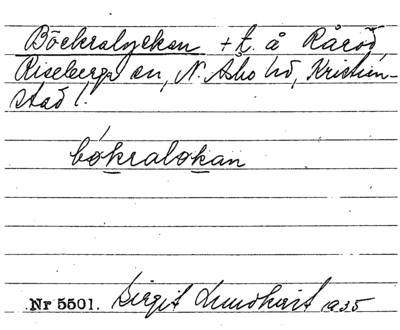 Böckralyckan + t. å Råröd,
Riseberga sn, N. Åsbo hd, Kristian-
stad l.
bókralokan
Nr 5501. Birgit Lundkvist 1935